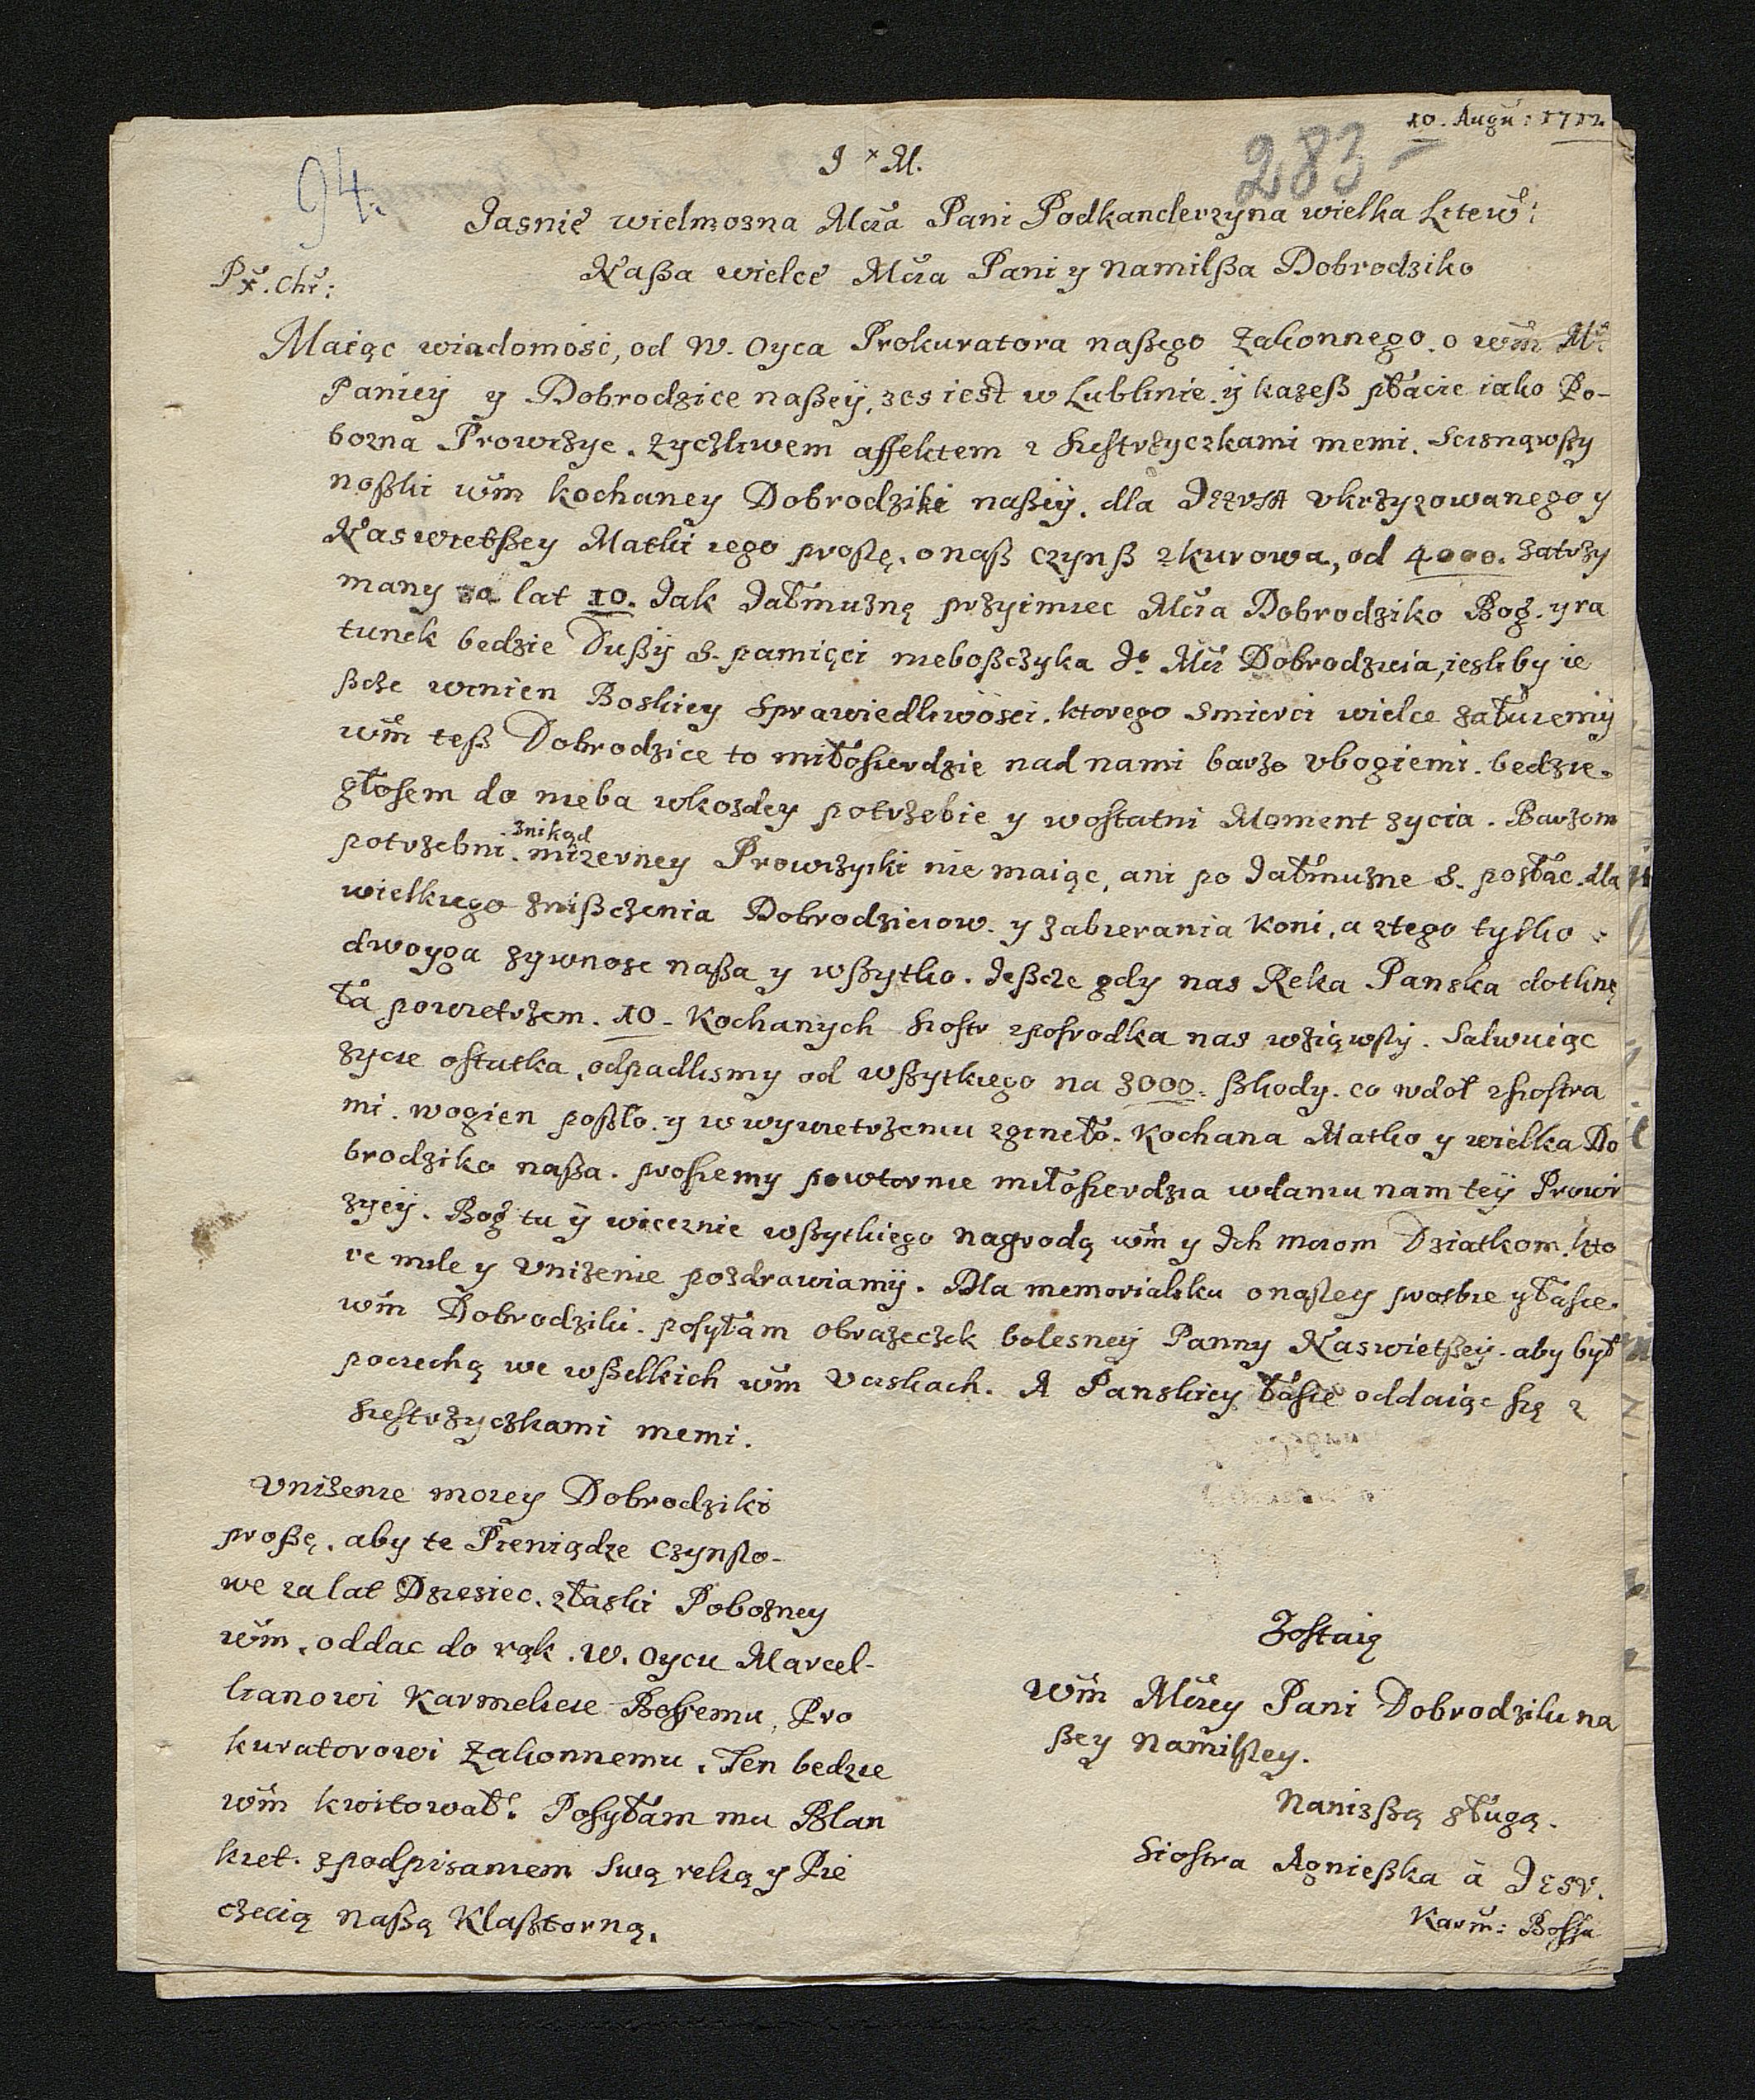 10. Augu: 1712
J + M.
283 –
94.
Jasnie wielmozna Mcia Pani Podkanclerzyna wielka Litew:
Px. Chr:
Naßa wielce Mcia Pani y namilßa Dobrodziko
Maiąc wiadomosc, od W. Oyca Prokuratora naßego Zakonnego. o wm M:
Paniey y Dobrodzice naßey, zes iest w Lublinie. y kazeß płacic iako Po-
bozna Prowizye. zyczliwem affektem z siestrzyczkami memi. Scisnąwßy
noßki wm kochaney Dobrodziki naßiy. dla Jezusa ukrzyzowanego y
Naswietßey Matki iego proßę. o naß czynß z kurowa, od 4000. zatrzy
many za lat 10. Jak Jałmuznę przyimiec Mcia Dobrodziko Bog. y ra
tunek bedzie Dußiy S. pamięci nieboßczyka Jo Mci Dobrodzieia, iesliby ie
ßcze winien Boskiey Sprawiedliwosci. ktorego smierci wielce załuiemy
wm teß Dobrodzice to miłosierdzie nad nami barzo ubogiemi. bedzie.
głosem do nieba w kozdey potrzebie y w ostatni Moment zycia. Barzom
potrzebni. znikąd mizerney Prowizyiki nie maiąc, ani po Jałmuzne S. posłac. dla
wielkiego znißczenia Dobrodzieiow. y zabierania koni, a z tego tylko
dwoyga zywnosc naßa y wßytko. Jeßcze gdy nas Reka Panska dotknę
ła powietrzem. 10 - kochanych siostr z posrodka nas wziąwßy. Salwuiąc
zycie ostatka, odpadlismy od wßytkiego na 3000. ßkody. co w doł z siostra
mi. w ogien poßło. y w wywietrzeniu zgineło. kochana Matko y wielka Do
brodziko naßa. prosiemy powtornie miłosierdzia w daniu nam tey Prowi
zyey. Bog tu y wiecznie wßytkiego nagrodą wm y Jch mciom Dziatkom. kto
re mile y unizenie pozdrawiamy. Dla memorialiku o naßey prosbie y łasie.
wm Dobrodziki. posyłam obrazeczek bolesney Panny Naswietßey. aby był
pociechą we wßelkich wm uciskach. A Panskiey łasie oddaiąc się z
siestrzyczkami memi.
Unizenie moiey Dobrodziki
proßę. aby te Pieniądze czynßo-
we za lat Dziesiec. z łaski Pobozney
wm. oddac do rąk. W. Oycu Marcel-
lianowi karmelicie Bosemu, Pro
kuratorowi Zakonnemu. Ten bedzie
wm kwitował. Posyłam mu Blan
kiet. z podpisaniem swą reką y Pie
czecią naßą Klaßtorną.
Zostaię
wm Mciey Pani Dobrodziki na
ßey namilßey.
Nanizßą sługą.
Siostra Agnießka à Jesu.
Karm: Bossa